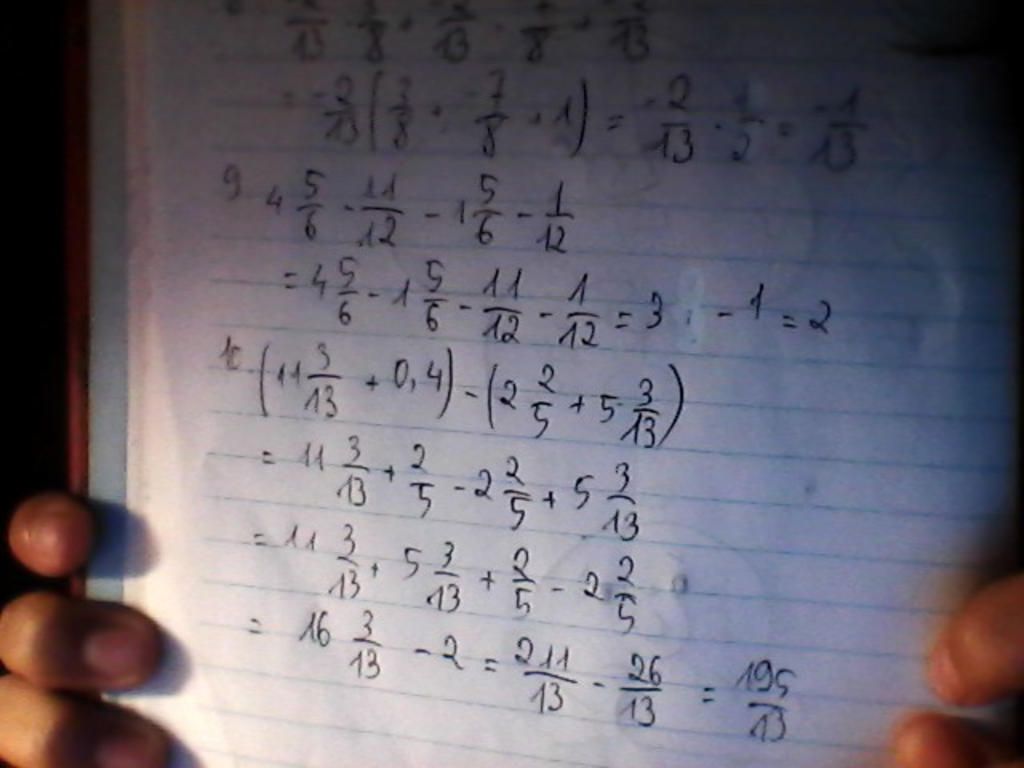 -2/13 · 3/8 + -2/13 · -7/8 + -2/13
= -2/13 (3/8 + -7/8 + 1) = -2/13 · 1/2 = -1/13
9 4 5/6 - 11/12 - 1 5/6 - 1/12
= 4 5/6 - 1 5/6 - 11/12 - 1/12 = 3 - 1 = 2
10 (11 3/13 + 0,4) - (2 2/5 + 5 3/13)
= 11 3/13 + 2/5 - 2 2/5 + 5 3/13
= 11 3/13 + 5 3/13 + 2/5 - 2 2/5
= 16 3/13 - 2 = 211/13 - 26/13 = 195/13